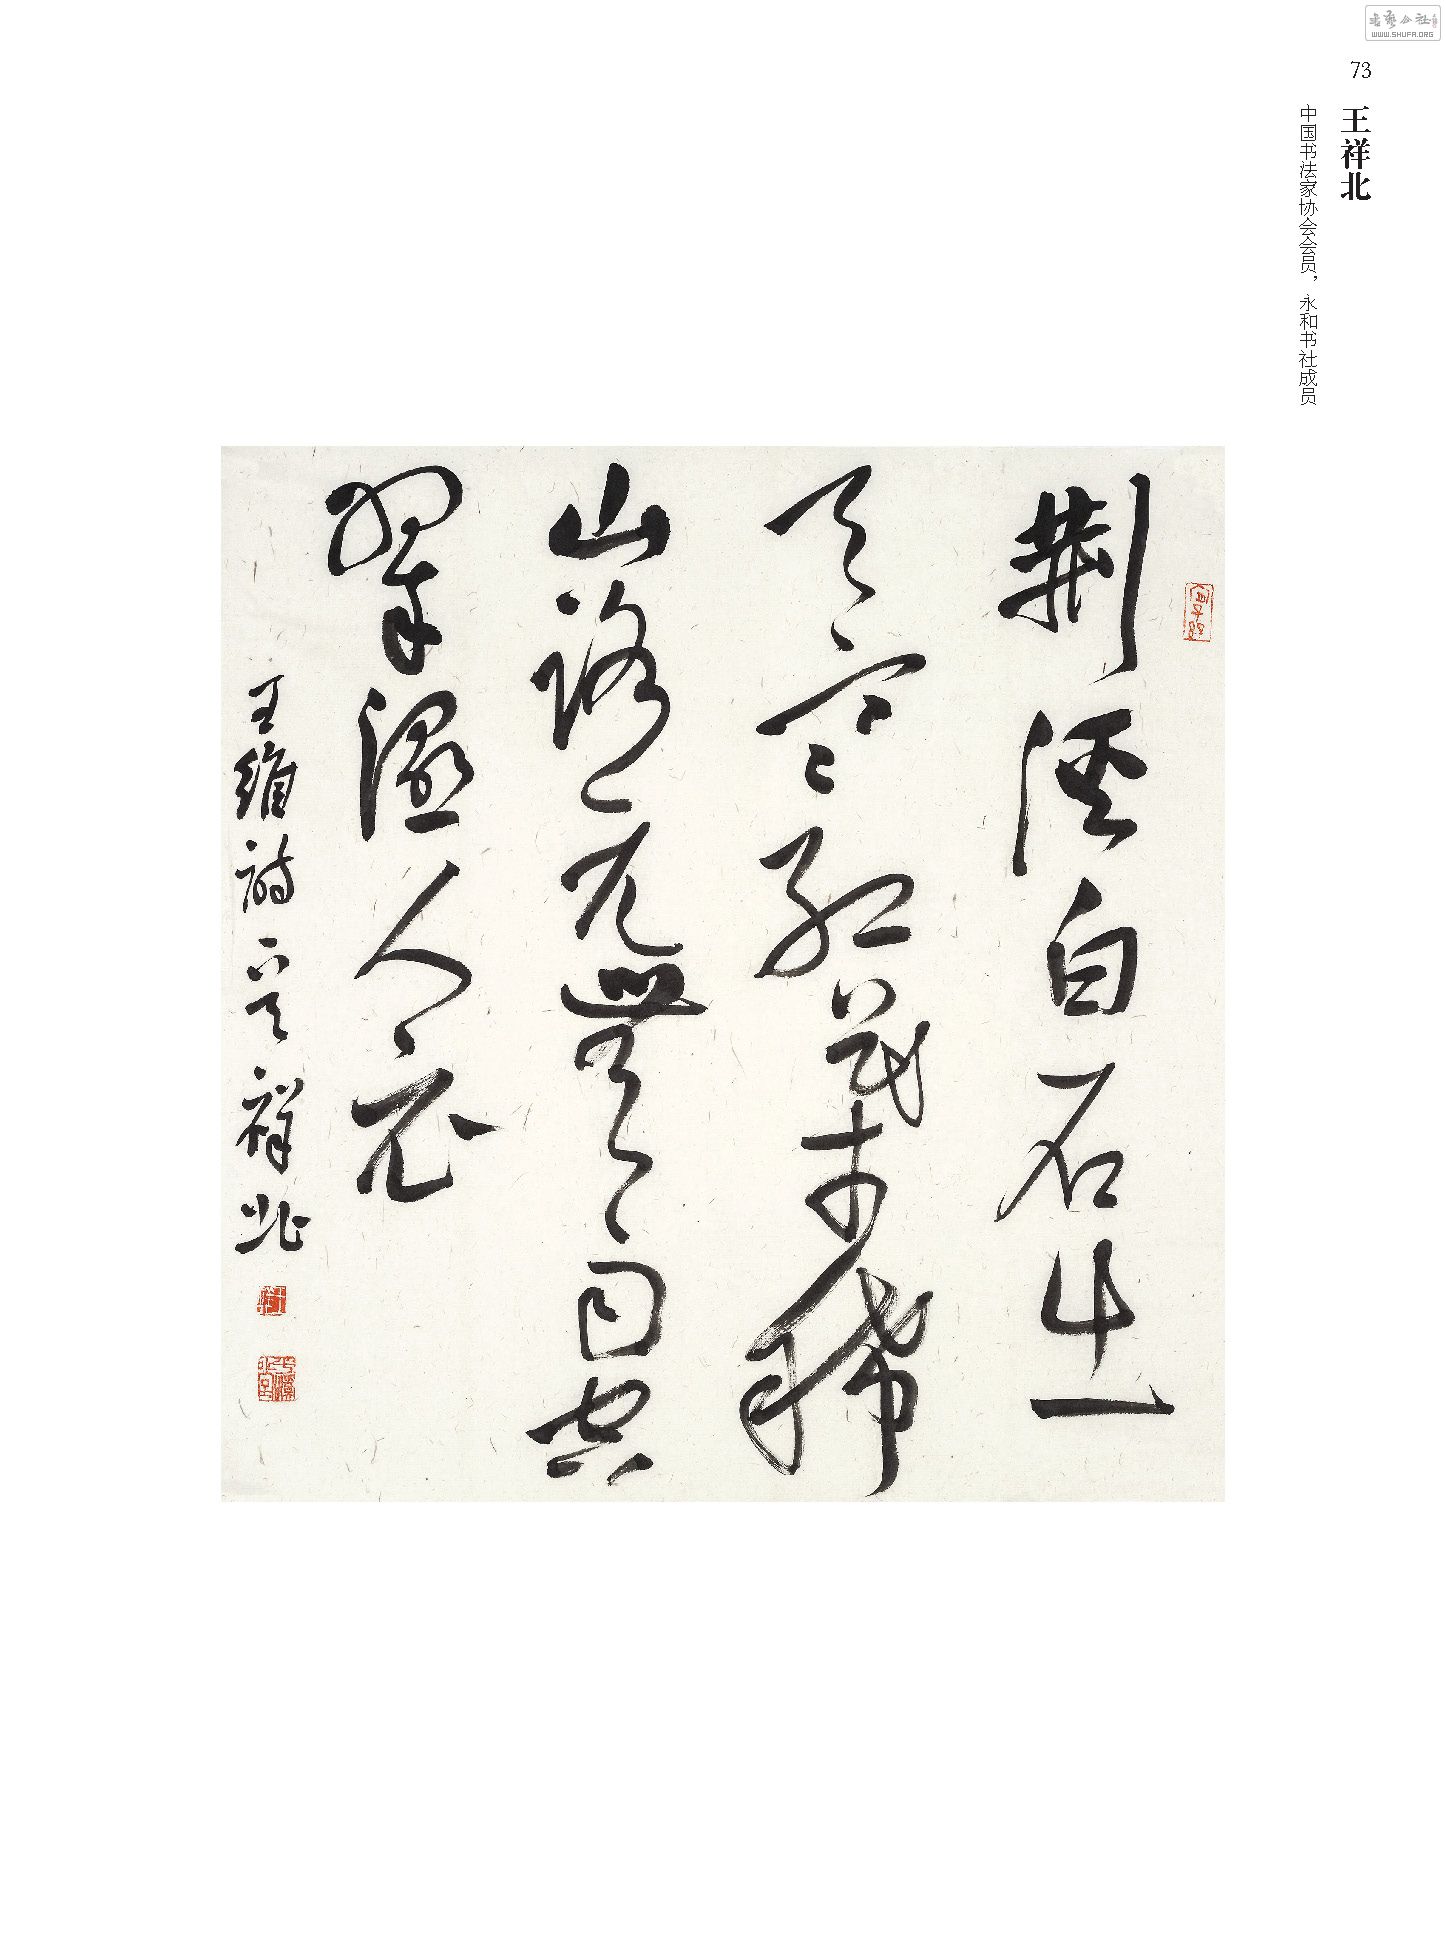 書藝公社
WWW.SHUFA.ORG
73
王祥北
中国书法家协会会员，永和书社成员
荊溪白石出
天寒紅葉稀
山路元無雨空
翠濕人衣
王維詩 祥北